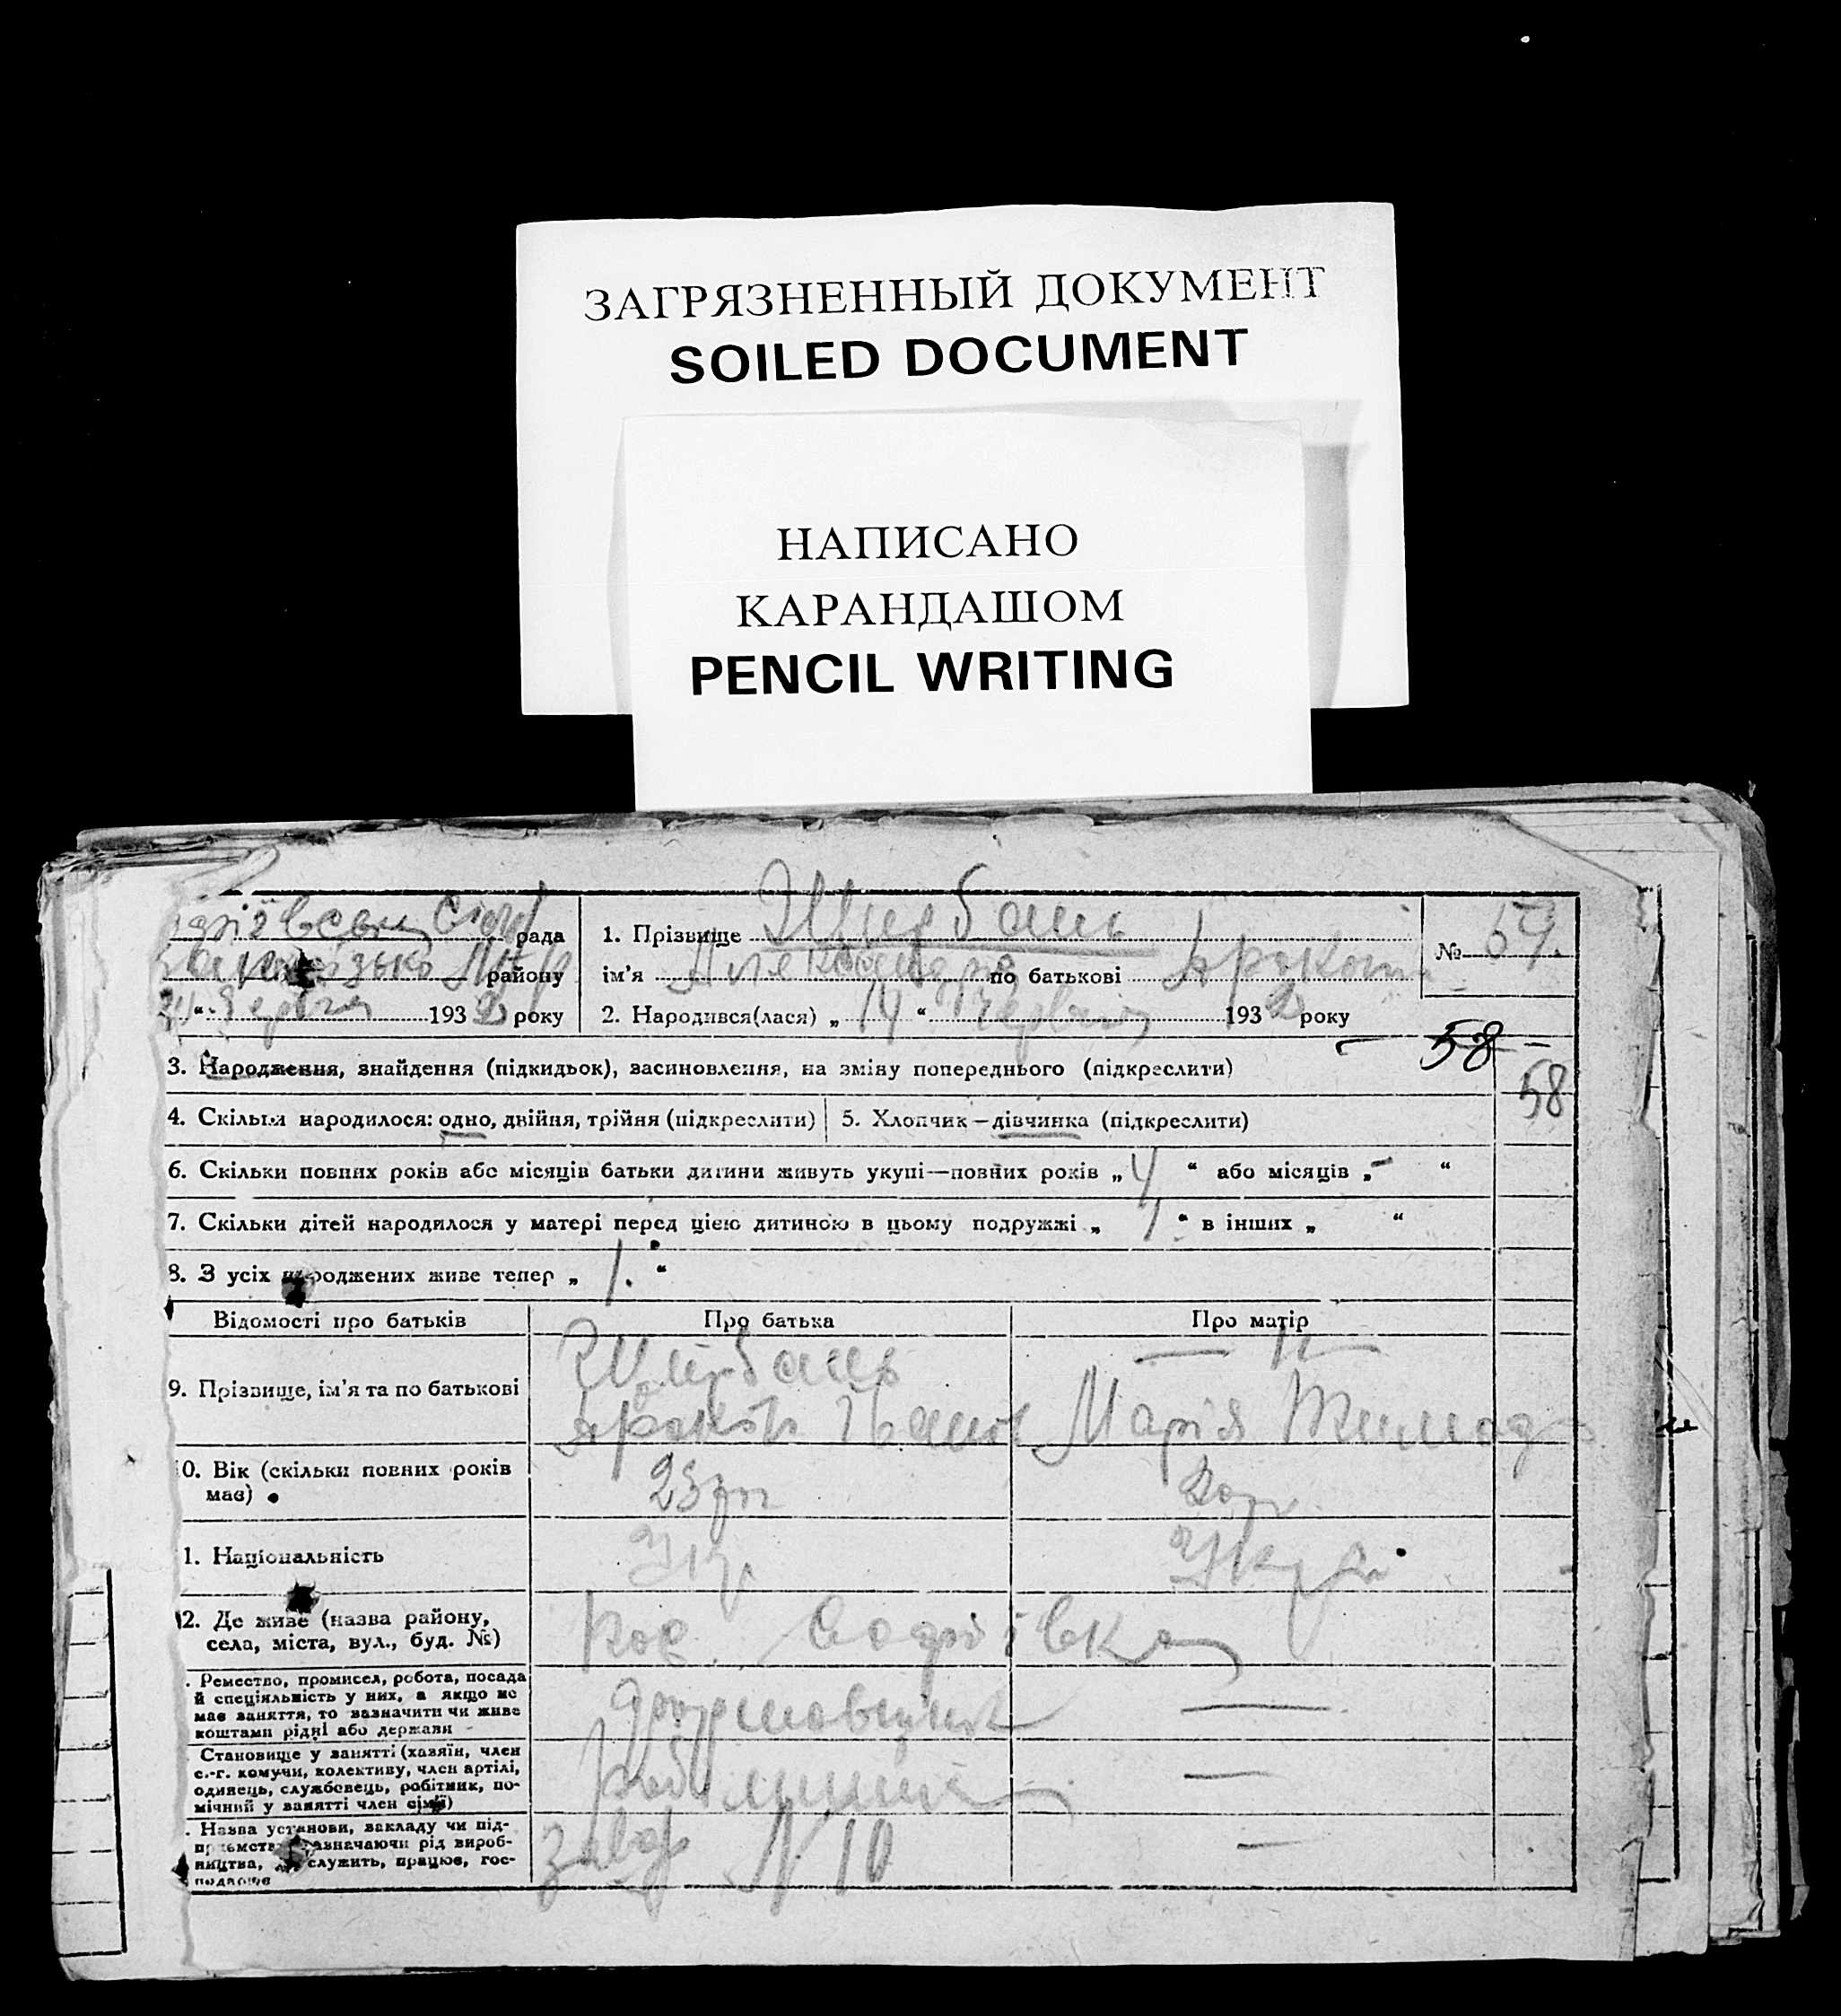 ЗАГРЯЗНЕННЫЙ ДОКУМЕНТ
SOILED DOCUMENT
НАПИСАНО
КАРАНДАШОМ
PENCIL WRITING
рада
району
193 2 року
1. Прізвище Щербань
ім'я Александра по батькові
2. Народився(лася) „ 14 “ Червня 193 2 року
№
58
3. Народження, знайдення (підкидьок), васиновлення, на зміну попереднього (підкреслити)
58
4. Скільки народилося: одно, двійня, трійня (підкреслити)
5. Хлопчик—дівчинка (підкреслити)
6. Скільки повних років або місяців батьки дитини живуть укупі—повних років „ 4 “ або місяців „ – “
7. Скільки дітей народилося у матері перед цією дитиною в цьому подружжі „ 1. “ в інших „ “
8. З усіх народжених живе тепер „ 1. “
Відомості про батьків
Про батька
Про матір
9. Прізвище, ім'я та по батькові
Щербань
Марія
0. Вік (скільки повних років
має)
1. Національність
Укр.
Укр
2. Де живе (назва району,
села, міста, вул., буд. №)
. Ремество, промисел, робота, посада
й спеціяльність у них, а якщо не
має заняття, то зазначити чи живе
коштами рідні або держави
Становище у занятті (хазяїн, член
с.-г. комуни, колективу, член артілі,
одинець, службовець, робітник, по-
мічний у занятті член сім'ї)
. Назва установи, закладу чи під-
приємства, зазначаючи рід вироб-
ництва, де служить, працює, гос-
подарює
завод № 10